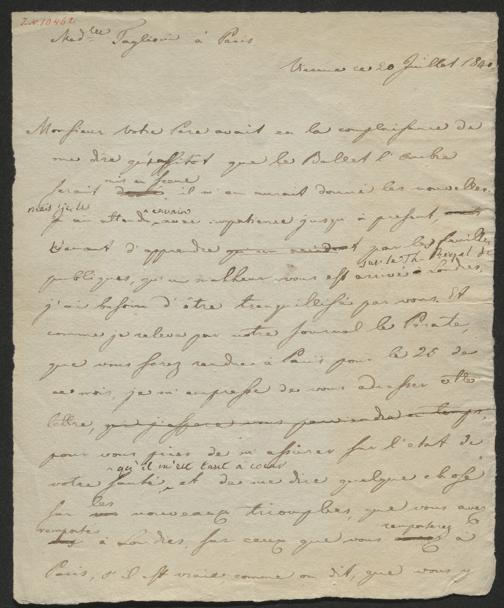 I.N. 10462
Mad.lle Taglioni à Paris
Vienne ce 20 Juillet 1840
Monsieur votre Pere avait eu la complaisance de
me dire qu'aussitôt que le Ballet l'ombre
mis en scene
serait il m'en aurait donné les nouvelles
mais je les
envain
ai attendu avec impatience jusqu'à present
Venant d'apprendre qu'un accident par les feuilles
sur le Th. Royal de
publiques, qu'un malheur vous est arrivé à Londres,
j'ai besoin d'être tranquillisé par vous. Et
comme je releve par notre Journal le Pirate,
que vous serez rendue à Paris pour le 25 de
ce mois, je m'empresse de vous adresser cette
lettre, qui j'espere vous parviendra a temps,
pour vous prier de m'assurer sur l'etat de
qu'il m'est tant à coeur
votre santé, et de me dire quelque chose
les
sur nouveaux triomphes, que vous avez
remporté
remporterez
à Londres, sur ceux que vous à
Paris, s'il est vrai comme on dit, que vous y